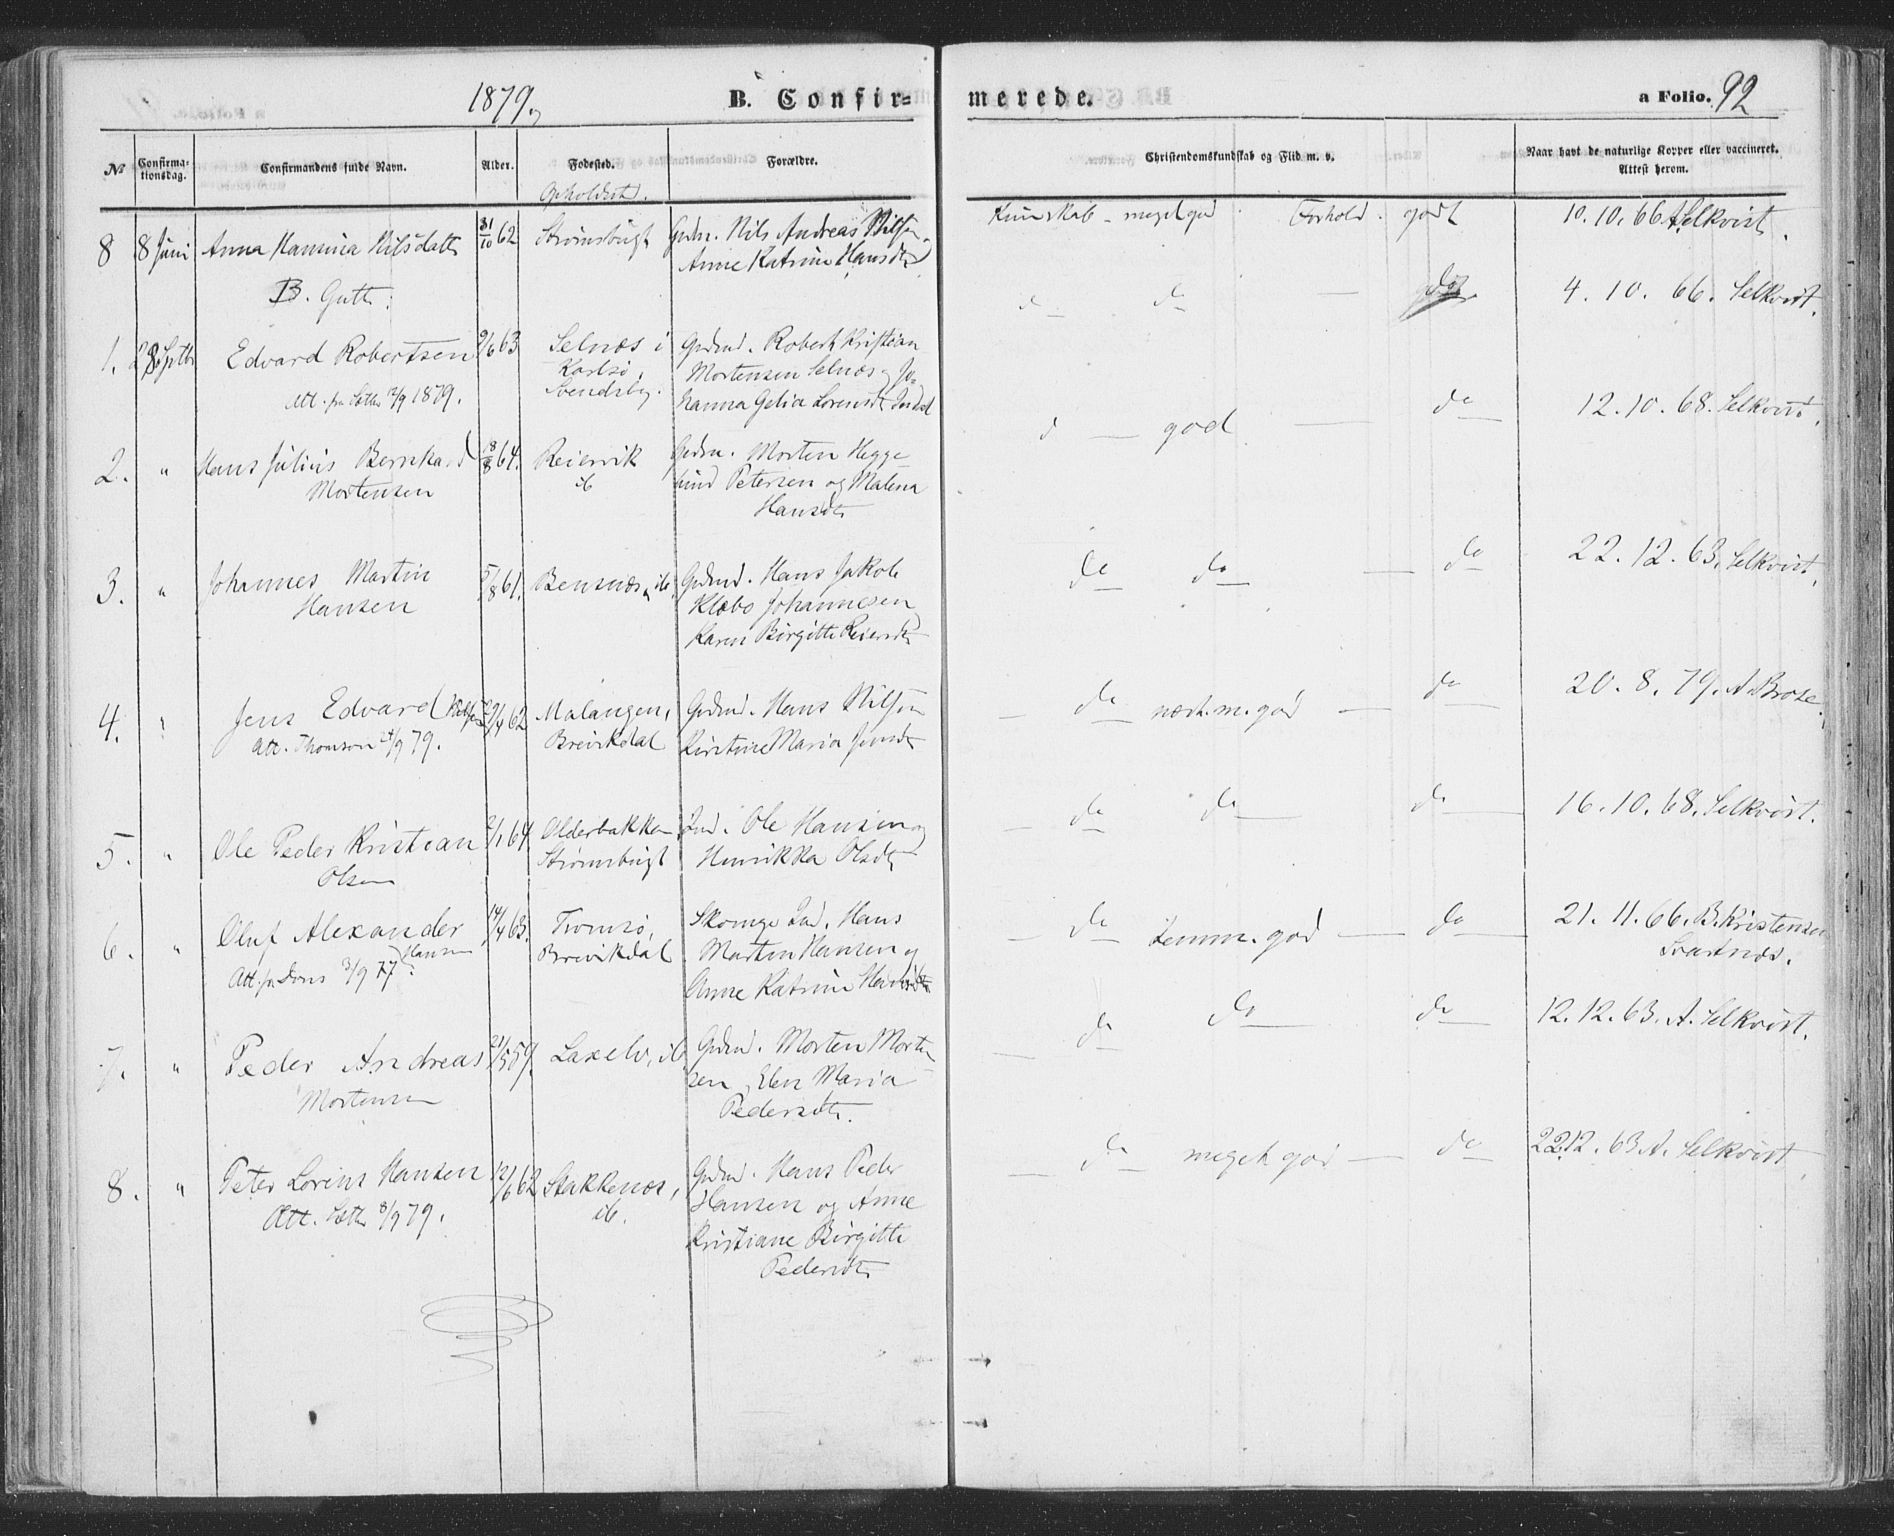 1879.
B. Confir=
merede.
a Folio. 92
No
Confirma-
tionsdag.
Confirmandens fulde Navn.
Alder.
Fødested.
Opholdsst.
Forældre.
Christendomskundskab og Flid m. v.
Naar havt de naturlige Kopper eller vaccineret.
Attest herom.
8 8 Juni Anna Hansina Nilsdatt 31/10 62 Strømsbugt Grdm. Nils Andreas Nilsen
Anne Katrine Hansdt
Kunskab - meget god Forhold. godt 10.10.66. A. Selkvist.
B. Gutt:
1. 28 Septb Edvard Robertsen 9/6 63 Selnæs i
Karlsø,
Svendsby.
Grdmd. Robert Kristian
Mortensen Selnæs og Jo-
hanna Gelia Lorensdt
Att. fra 12/9 1879.
d do do 4.10.66. Selkvist.
2. " Hans Julius Bernhard
Mortensen
18/8 64. Reiervik
ib
Grdm. Morten Hegge-
lund Petersen og Malena
Hansdt
d god do 12.10.68. Selkvist.
3. " Johannes Martin
Hansen
5/8 61. Bensnæs, ib. Grdmd. Hans Jakob
Klæbo Johannesen
Karen Birgitte Reiersdt
do do do 22.12.63. Selkvist.
4. " Jens Edvard
Att. Thomson 24/9 79.
62 Malangen,
Breivikdal
Grdmd. Hans Nilsen
Kirstine Maria Jensdt
do næst. m. god do 20.8.79. A. Brose.
5. " Ole Peder Kristian
Olsen
2/1 64. Olderbakken
Strømsbugt
Ind. Ole Hansen og
Henrikka Olsdt
do do do 16.10.68. Selkvist.
6. " Oluf Alexander
Hansen
Att. fr Dons 3/9 77.
14/4 63. Tromsø,
Breivikdal
Ind. Hans
Martin Hansen og
Anne Katrine
do temm. god do 21.11.66. B. Kristensen
Svartnæs.
7. " Peder Andreas
Mortensen
21/5 59. Laxelv, ib Grdmd. Morten Morten
sen, Elen Maria
Pedersdt.
do do do 12.12.63. A. Selkvist.
8. " Peter Lorens Hansen
Att. 8/9 79.
12/6 62 Stakkenæs,
ib.
Grdmd. Hans Peder
Hansen og Anne
Kristiane Birgitte
Pedersdt
do meget god do 22.12.63 A. Selkvist.